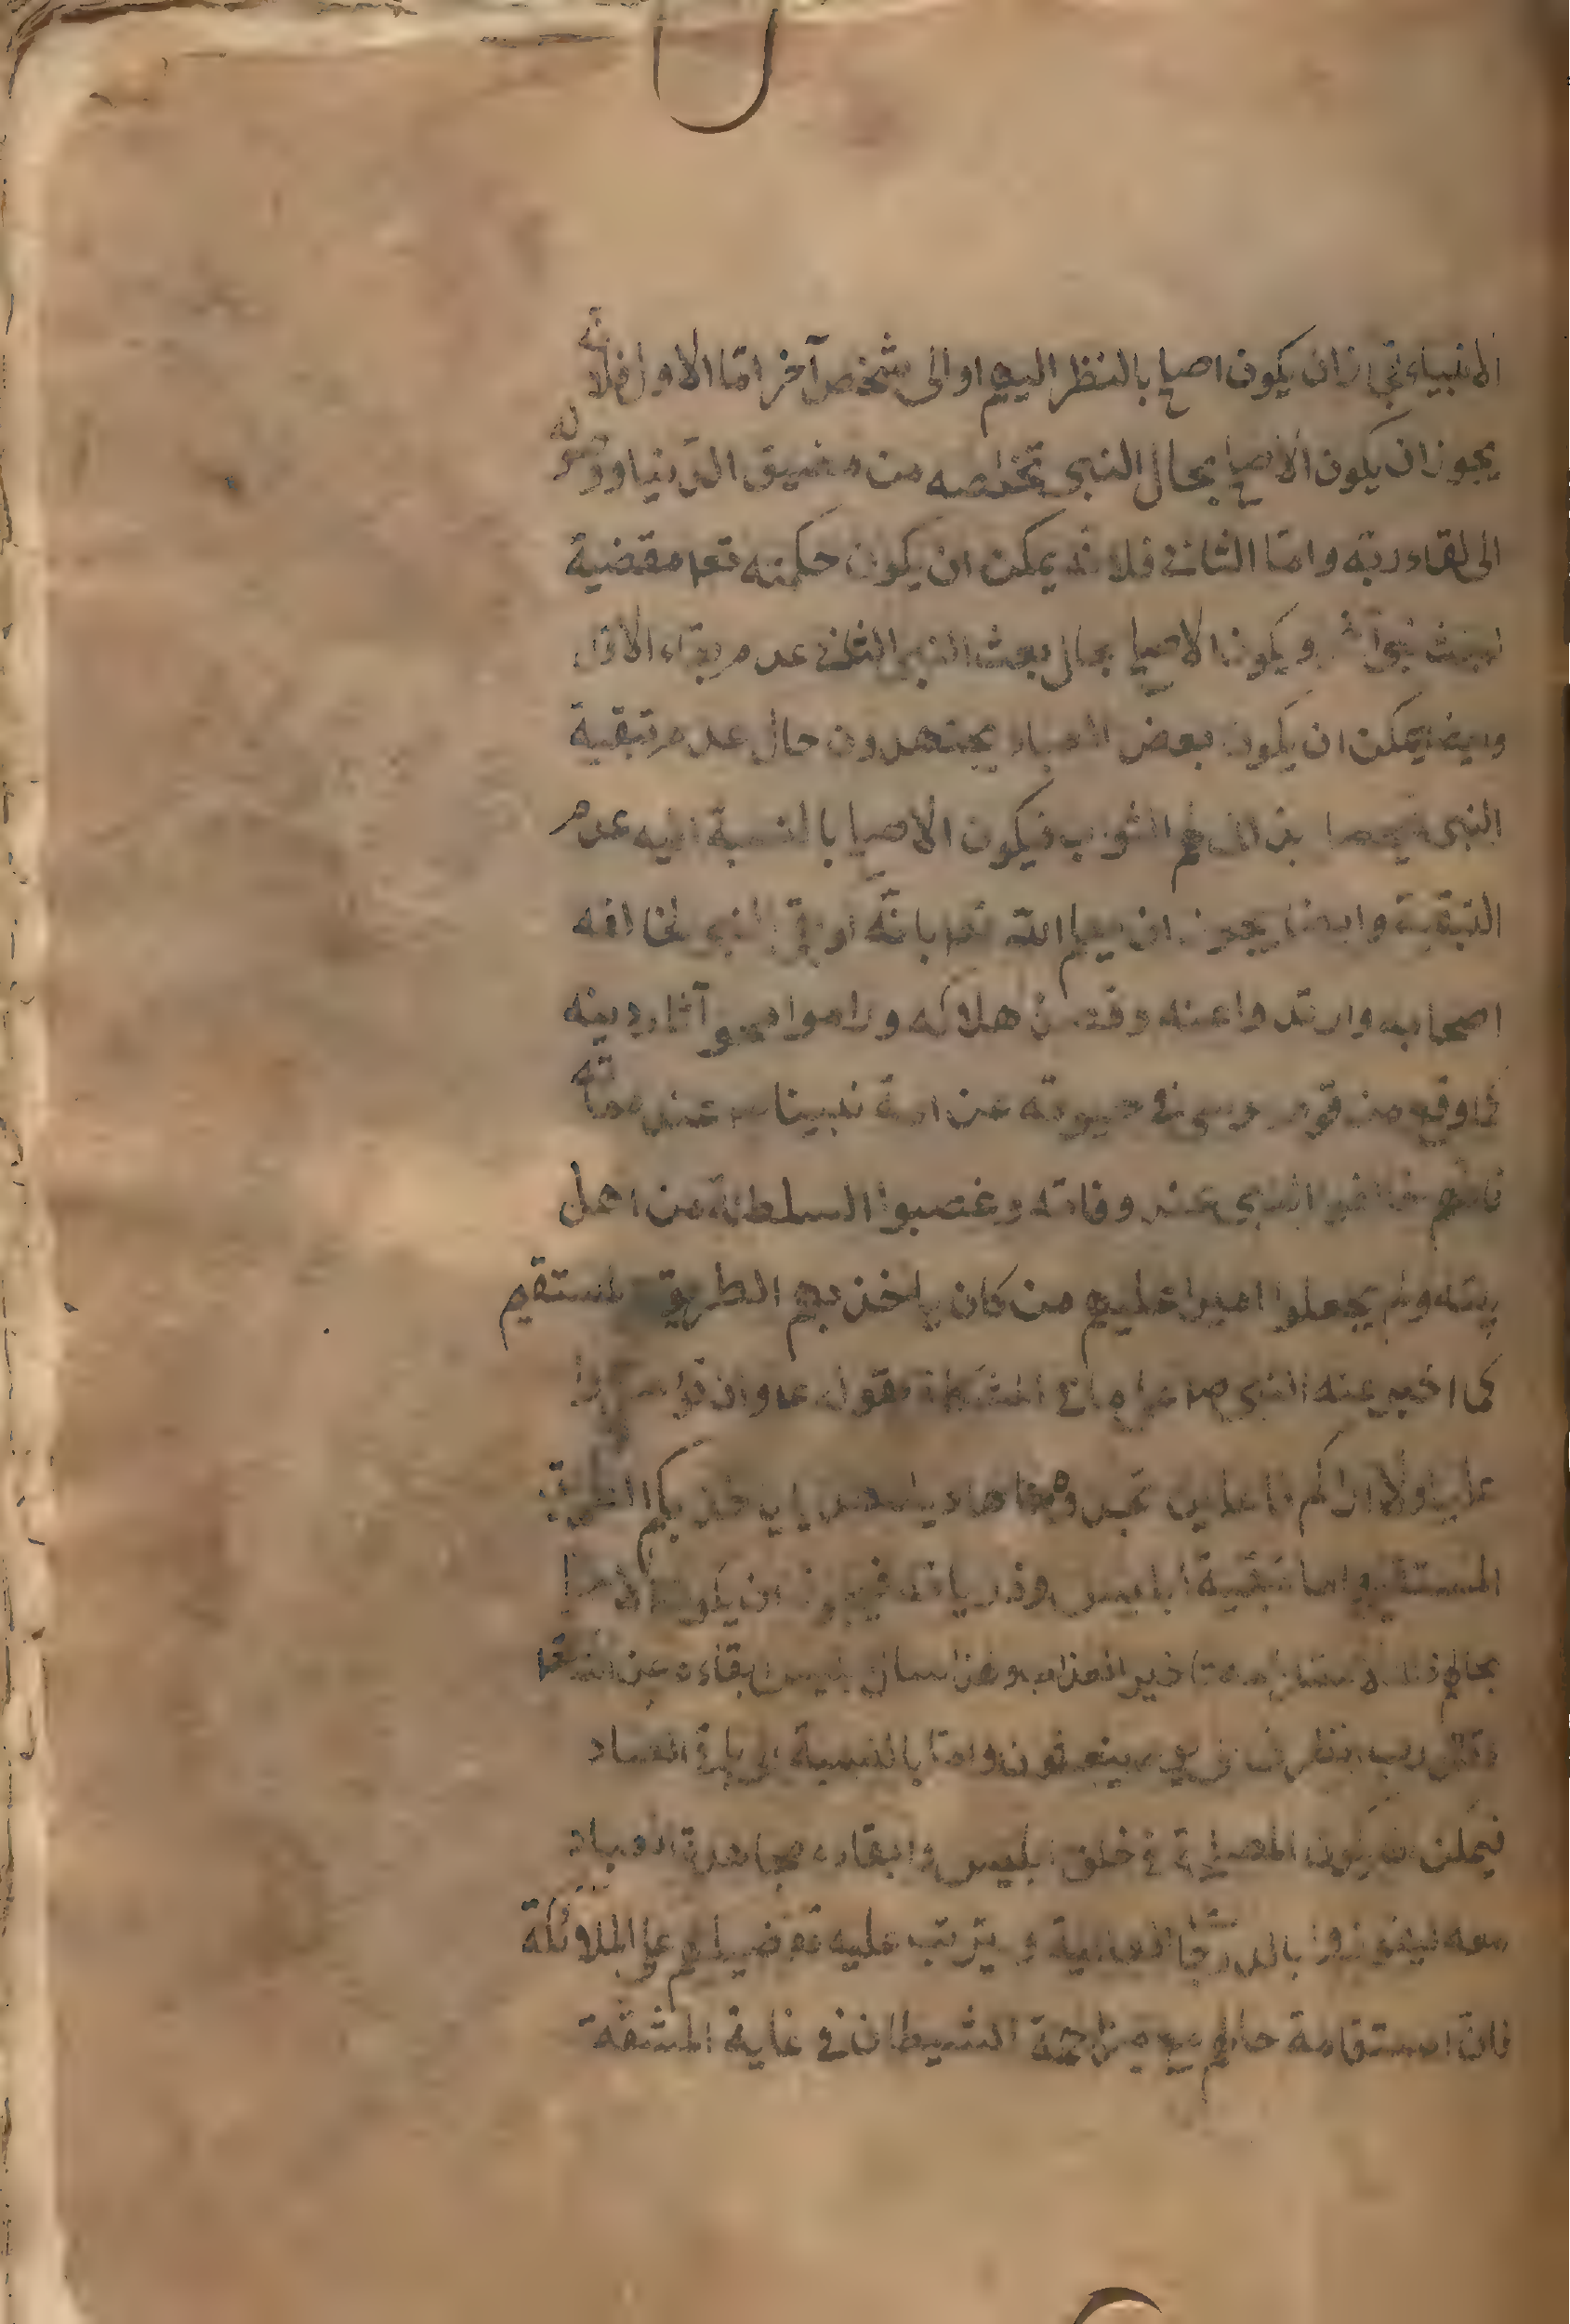 الانبياء فيجوز ان يكون اصلح بالنظر اليهم او الى شخص آخر امّا الاول فلانّه
يجوز ان يكون الاصلح بحال النبى تخلصه من مضيق الدّنيا ووصوله
الى لقاء ربّه وامّا الثانى فلانّه يمكن ان يكون حكمته تعا مقضية
لبعث نبى آخر ويكون الاصلح بحال بعث النبى الثانى عدم بقاء الاول
وايضا يمكن ان يكون بعض العباد يجتهدون حال عدم تبقية
النبى فيحصل بذلك لهم الثواب فيكون الاصلح بالنسبة اليه عدم
التبقية وايضا يجوز ان يعلم الله تعا بانّه لو بقى النبى لخالفه
اصحابه وارتدوا عنه وقصدوا هلاكه وراموا محو آثار دينه
كما وقع من قوم موسى فى حيوته عن امة نبينا عند مماته
فانهم خالفوا النبى عند وفاته وغصبوا السلطنة من اهل
بيته ولم يجعلوا اميرا عليهم من كان ياخذ بهم الطريق المستقيم
كما اخبر عنه النبى صلى على ما فى المشكاة بقوله وان تؤمروا
عليا ولا اراكم فاعلين تجدوه هاديا مهديا ياخذ بكم الطريق
المستقيم واما تبقية ابليس وذرياته فيجوز ان يكون الاصلح
بحالهم تاخير العذاب وهذا سال ابليس ابقاءه عن الله تعا
وقال رب انظرنى الى يوم يبعثون وامّا بالنسبة الى باقى العباد
فيمكن ان يكون المصلحة فى خلق ابليس وابقاءه مجاهدة العباد
معه ليفوزوا بالدرجات العالية ويترتب عليه تفضيلهم على الملائكة
فانّ استقامة حالهم مع مزاحمة الشيطان فى غاية المشقّة